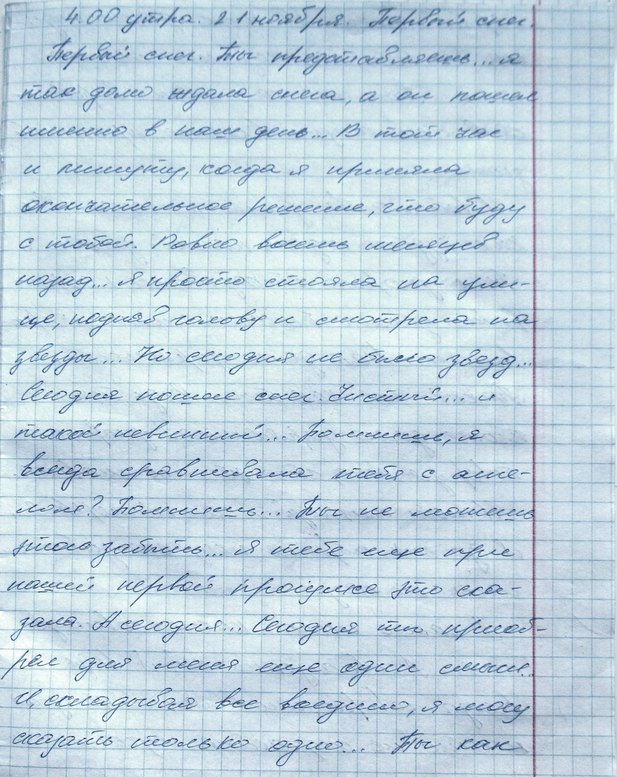 4.00 утра. 21 ноября. Первый снег
Первый снег. Ты представляешь... я
так долго ждала снега, а он пошел
именно в наш день... В тот час
и минуту, когда я приняла
окончательное решение, что буду
с тобой. Ровно восемь месяцев
назад... Я просто стояла на ули-
це, подняв голову и смотрела на
звезды... Но сегодня не было звезд...
Сегодня пошел снег. Чистый... и
такой невинный... Помнишь, я
всегда сравнивала тебя с анге-
лом? Помнишь... Ты не можешь
этого забыть... Я тебе еще при
нашей первой прогулке это ска-
зала. А сегодня... Сегодня ты приоб-
рел для меня еще один смысл..
И, складывая все воедино, я могу
сказать только одно... Ты как